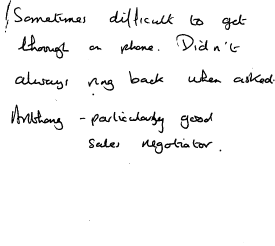 Sometimes difficult to get
through on phone. Didn't
always ring back when asked.
Anthony - particularly good
sales negotiator.